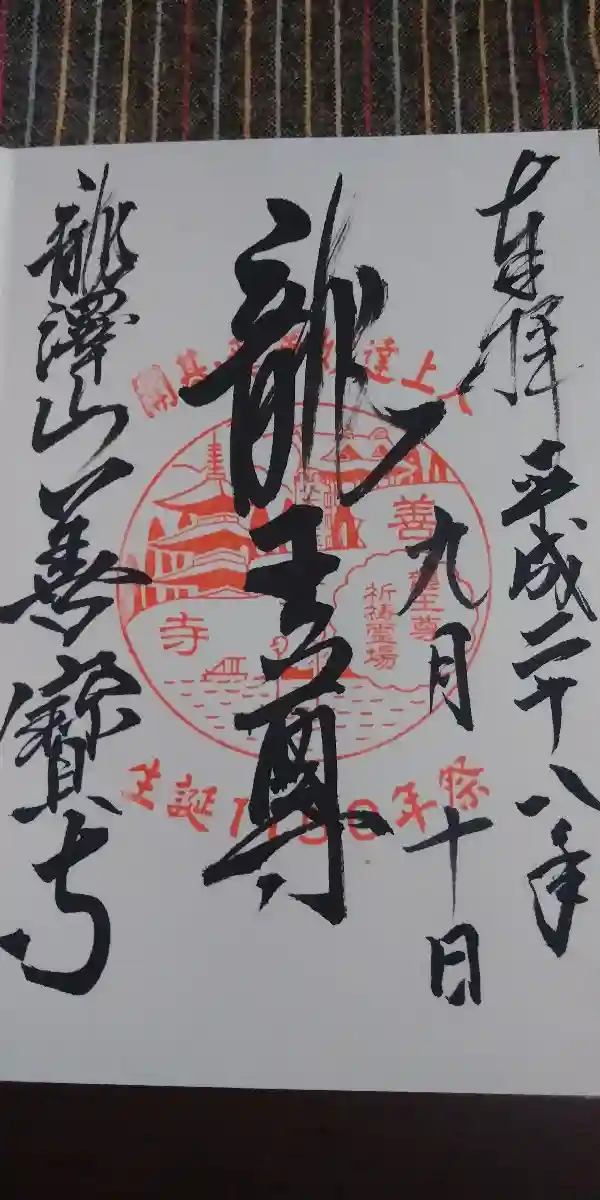 奉拝 平成二十八年
九月十日
龍王尊
龍澤山善寳寺
上人
達
開基
善
寺
龍王尊
祈祷霊場
生誕1150年祭